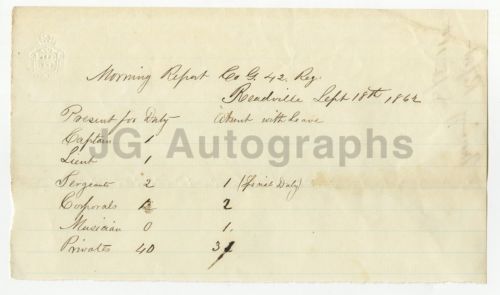 Morning Report Co G. 42. Reg.
Readville Sept 18th, 1862
Present for Duty Absent with leave
Captain 1
JG Autographs
Lieut 1
Sergeants 2 1 (Special Duty)
Corporals 2
Musician 0 1.
Privates 40